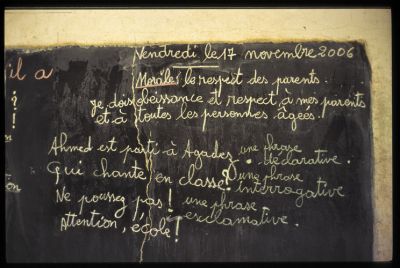 Vendredi le 17 novembre 2006
il a
Morale: le respect des parents.
je dois obeissance et respect, à mes parents
et à toutes les personnes âgées.
?
!
Ahmed est parti à Agadez. une phrase déclarative.
Qui chante en classe? une phrase interrogative
Ne poussez pas! une phrase exclamative.
Attention, école!